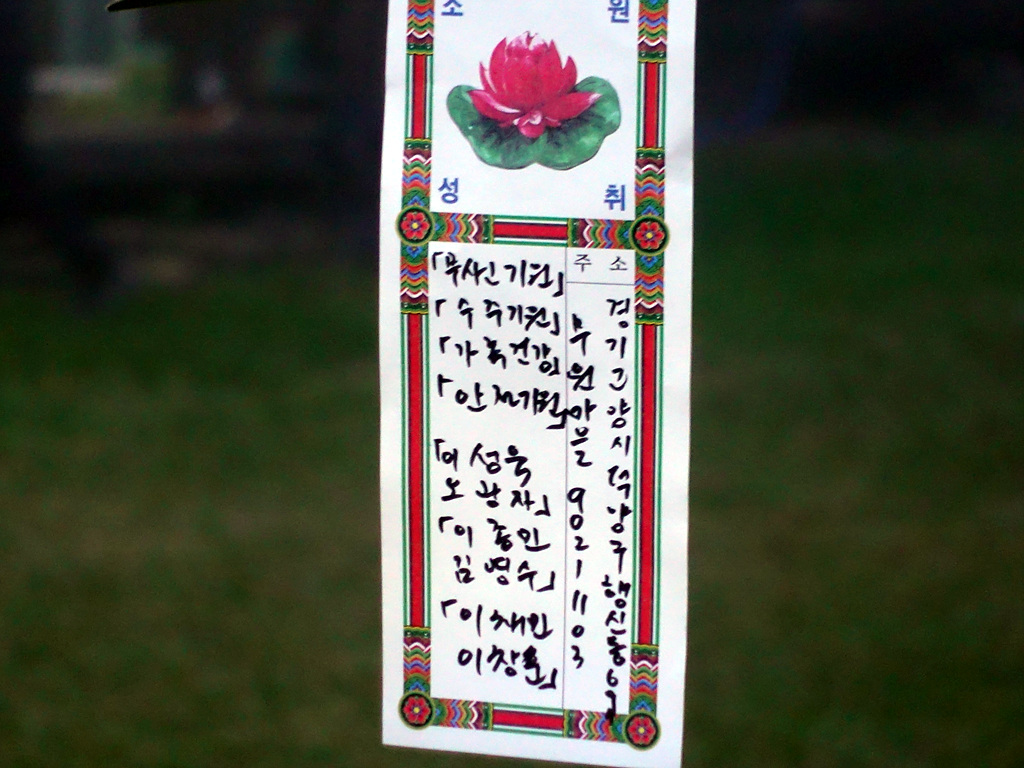 소 원
성 취
주 소
경기고양시덕양구행신동
무원마을 902-1103
「무사고기원」
「수주기원」
「가족건강」
「안전기원」
「이성욱
오광자」
「이종인
김영수」
「이채인
이창훈」